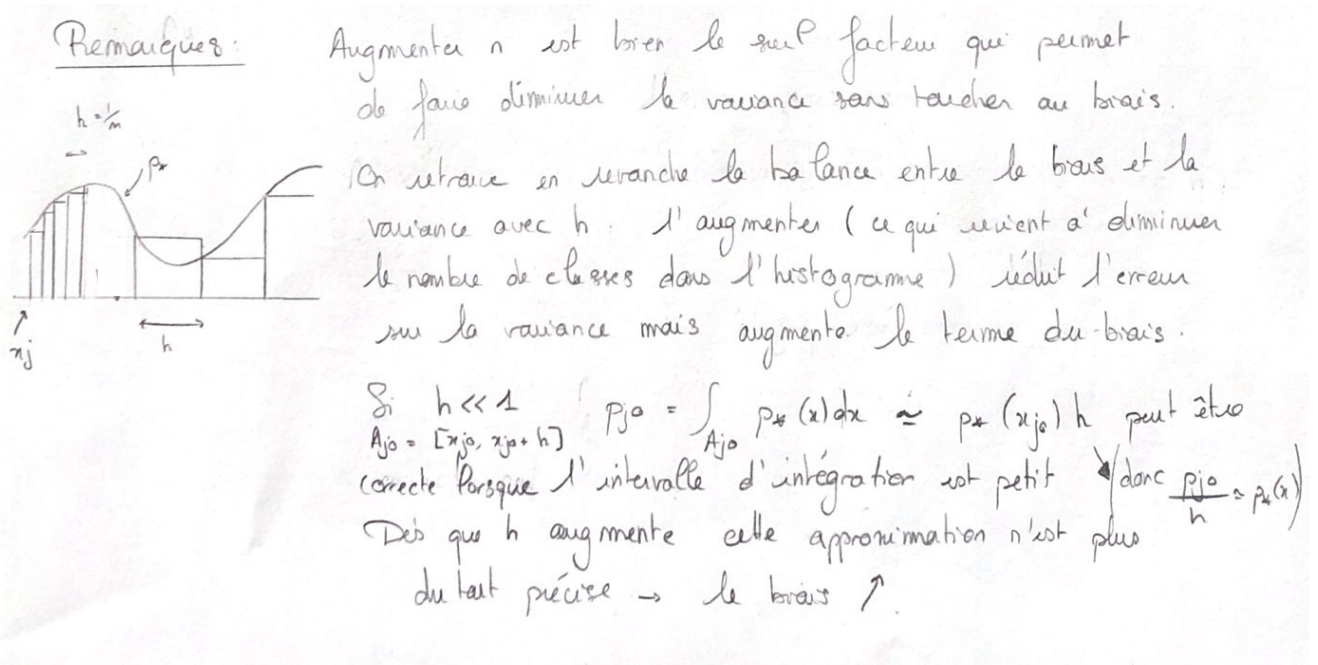 Remarques :
Augmenter n est bien le seul facteur qui permet
de faire diminuer la variance sans toucher au biais.
h = 1/m
p*
On retrouve en revanche la balance entre le biais et la
variance avec h : l'augmenter (ce qui revient à diminuer
le nombre de classes dans l'histogramme) réduit l'erreur
sur la variance mais augmente le terme du biais.
h
xj
Si h << 1 pj0 = ∫Aj0 p*(x)dx ≃ p*(xj0) h peut être
Aj0 = [xj0, xj0 + h]
correcte lorsque l'intervalle d'intégration est petit (donc pj0/h ≃ p*(x))
Dès que h augmente cette approximation n'est plus
du tout précise → le biais ↑.